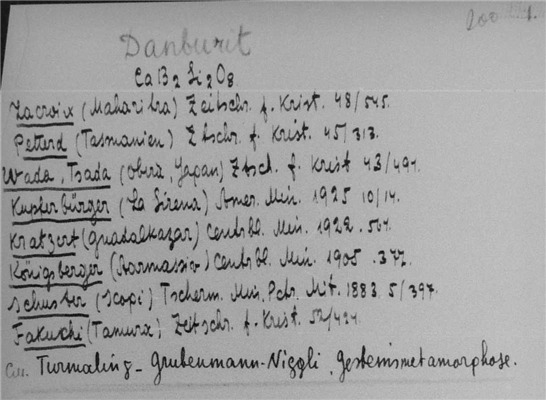 200 1.
Danburit
CaB2Si2O8
Lacroix (Maharitra) Zeitschr. f. Krist. 48/545.
Petterd (Tasmanien) Ztschr. f. Krist. 45/313.
Wada, Tsada (Obira, Japan) Ztsch. f. Krist 43/491.
Kupferbürger (La Sirena) Amer. Min. 1925 10/14.
Kratzert (Guadalkazar) Centrbl. Min. 1922. 504.
Königsberger Centrbl. Min. 1905. 377.
Schuster (Scopi) Tscherm. Min. Petr. Mit. 1883. 5/397.
Fakuchi (Tamura) Zeitschr. f. Krist. 52/424.
Turmaling - Grubenmann-Niggli, Gesteinsmetamorphose.